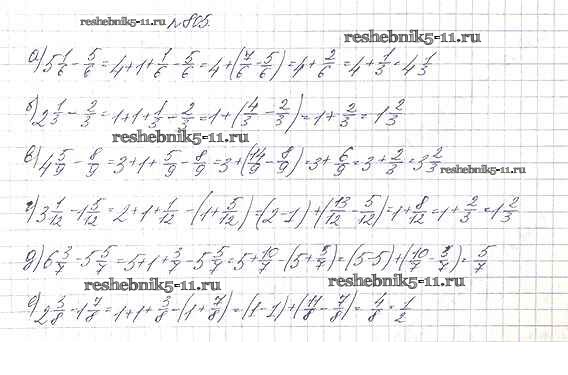 reshebnik5-11.ru № 805.
reshebnik5-11.ru
а) 5 1/6 - 5/6 = 4 + 1 + 1/6 - 5/6 = 4 + (7/6 - 5/6) = 4 + 2/6 = 4 + 1/3 = 4 1/3
б) 2 1/3 - 2/3 = 1 + 1 + 1/3 - 2/3 = 1 + (4/3 - 2/3) = 1 + 2/3 = 1 2/3
reshebnik5-11.ru
в) 4 5/9 - 8/9 = 3 + 1 + 5/9 - 8/9 = 3 + (14/9 - 8/9) = 3 + 6/9 = 3 + 2/3 = 3 2/3
reshebnik5-11.ru
г) 3 1/12 - 1 5/12 = 2 + 1 + 1/12 - (1 + 5/12) = (2 - 1) + (13/12 - 5/12) = 1 + 8/12 = 1 + 2/3 = 1 2/3
д) 6 3/7 - 5 5/7 = 5 + 1 + 3/7 - 5 5/7 = 5 + 10/7 - (5 + 5/7) = (5 - 5) + (10/7 - 5/7) = 5/7
reshebnik5-11.ru reshebnik5-11.ru
е) 2 3/8 - 1 7/8 = 1 + 1 + 3/8 - (1 + 7/8) = (1 - 1) + (11/8 - 7/8) = 4/8 = 1/2